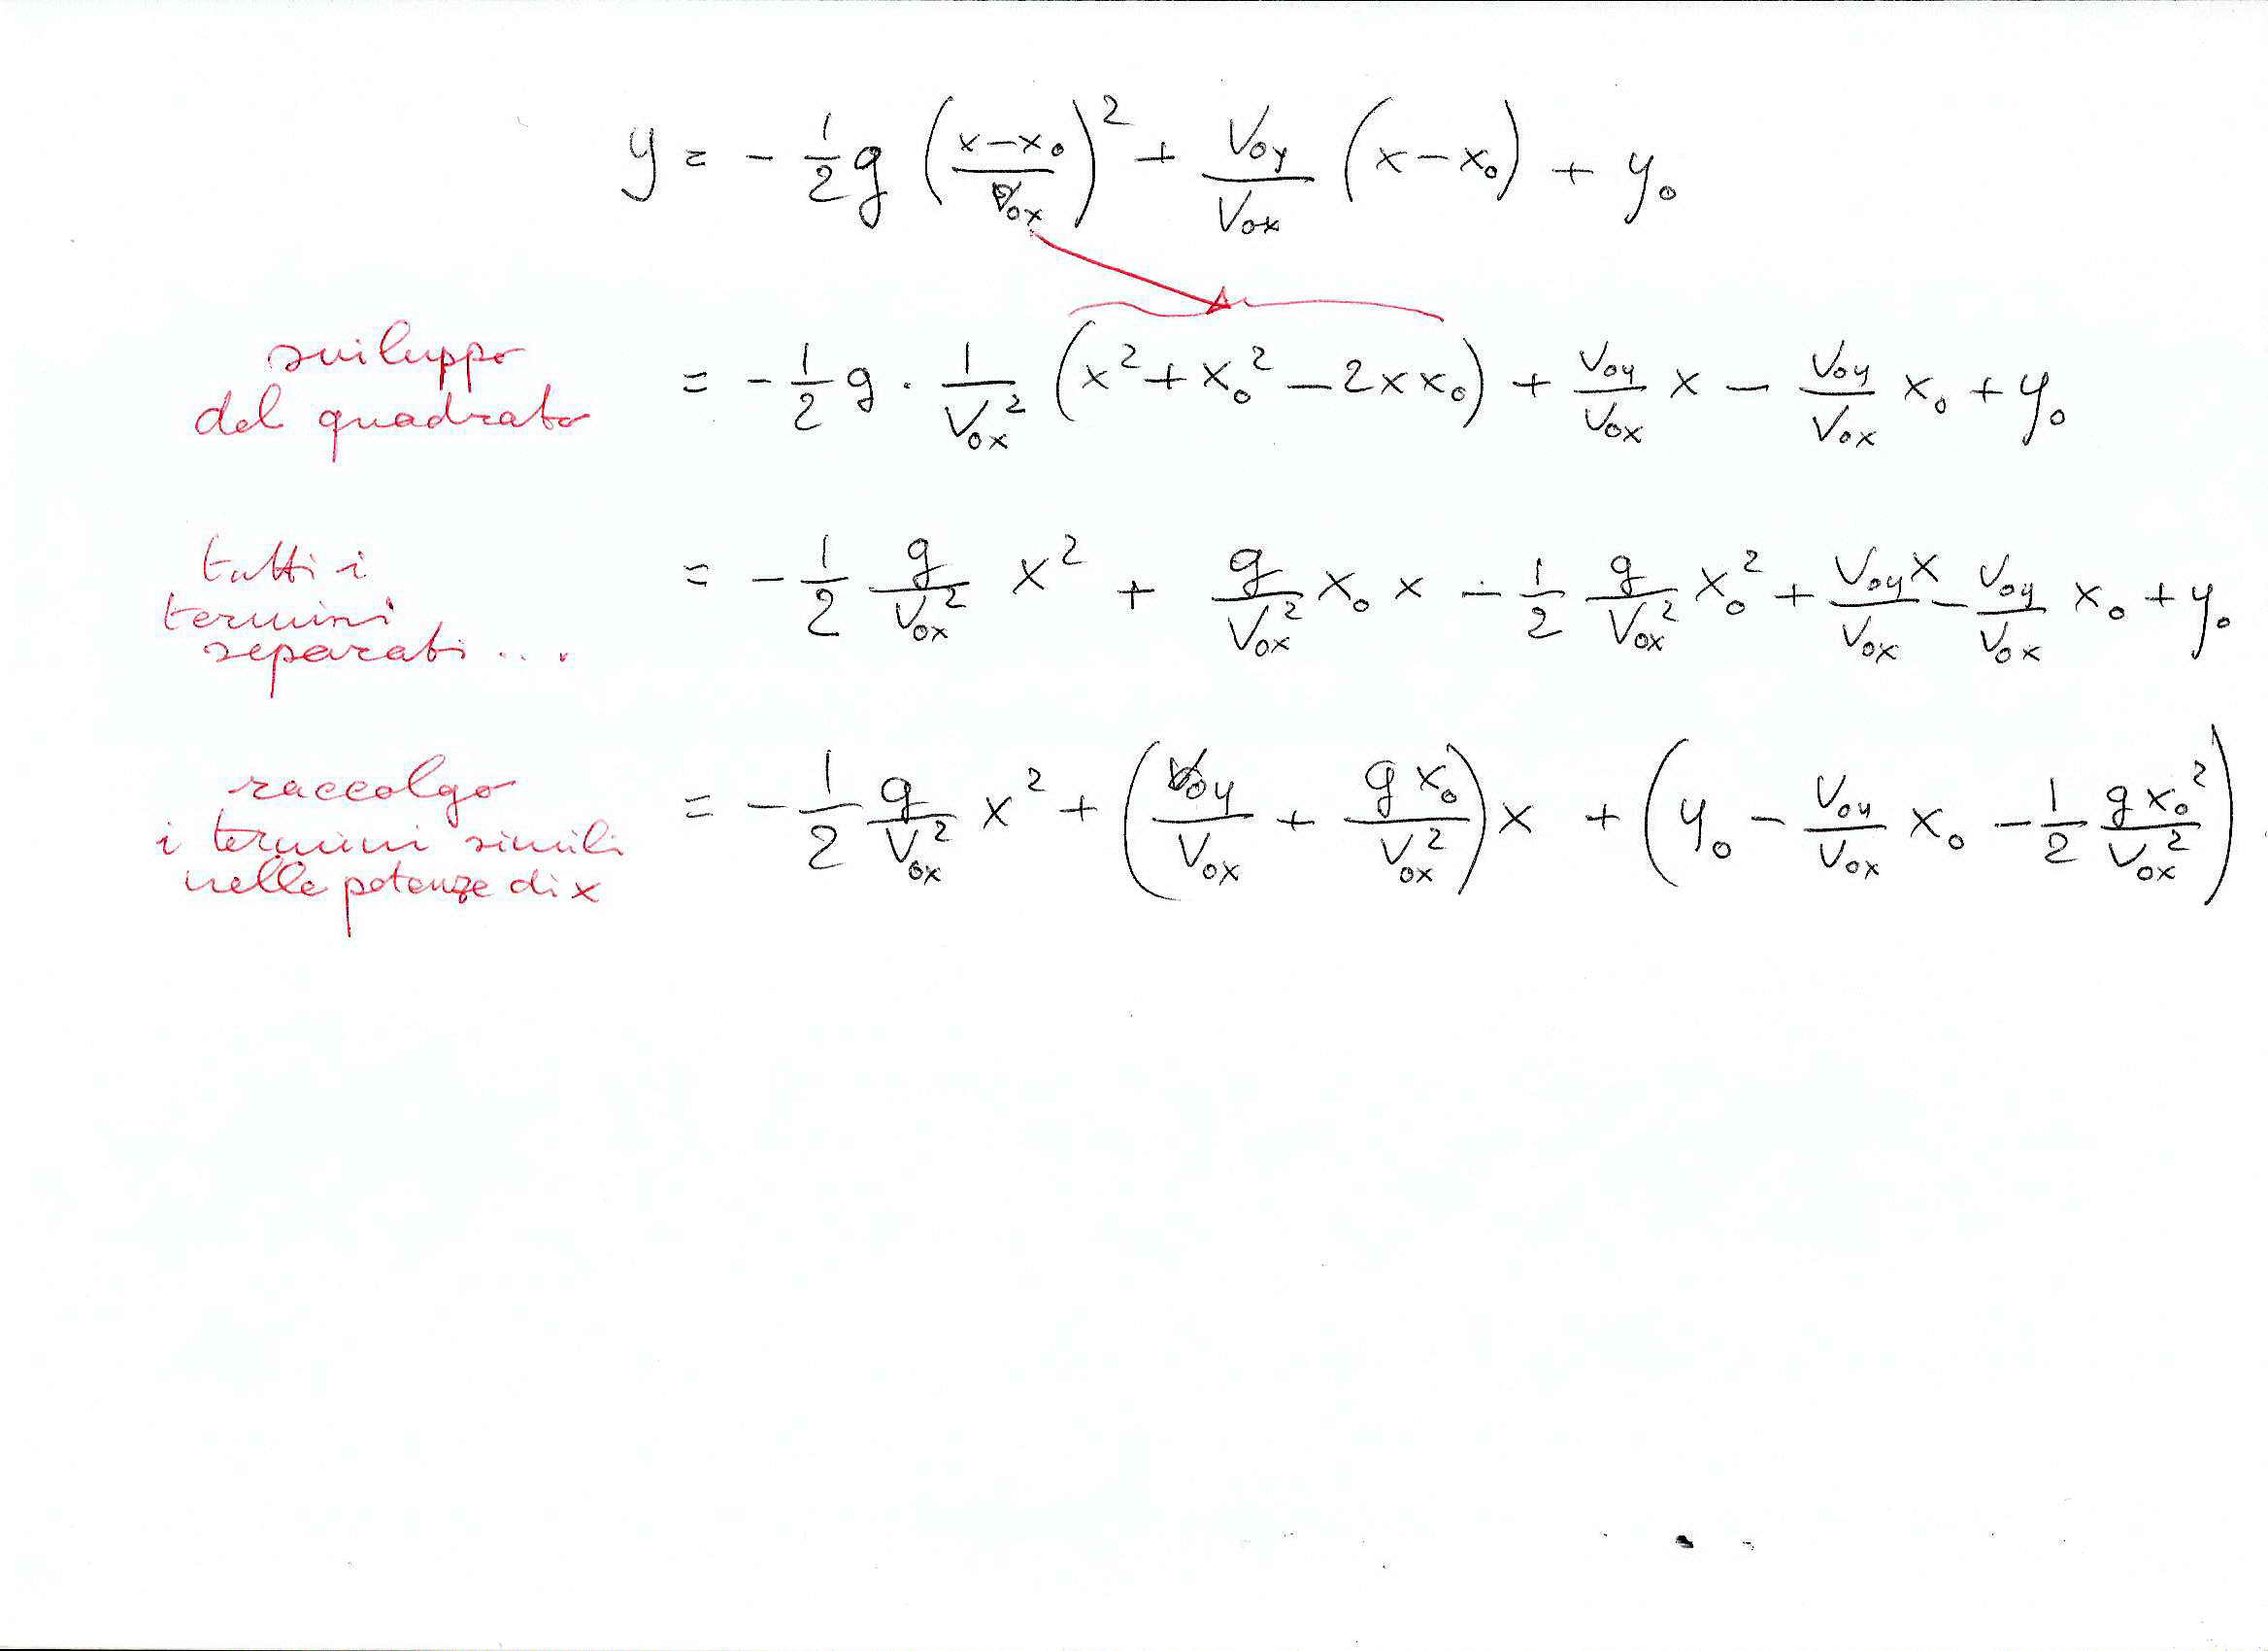 y = - 1/2 g ((x-x₀)/V₀ₓ)² + V₀y/V₀ₓ (x-x₀) + y₀
sviluppo
del quadrato
= - 1/2 g · 1/V₀ₓ² (x² + x₀² - 2xx₀) + V₀y/V₀ₓ x - V₀y/V₀ₓ x₀ + y₀
tutti i
termini
separati ...
= - 1/2 g/V₀ₓ² x² + g/V₀ₓ² x₀ x - 1/2 g/V₀ₓ² x₀² + V₀y x/V₀ₓ - V₀y/V₀ₓ x₀ + y₀
raccolgo
i termini simili
nelle potenze di x
= - 1/2 g/V₀ₓ² x² + (V₀y/V₀ₓ + g x₀/V₀ₓ²) x + (y₀ - V₀y/V₀ₓ x₀ - 1/2 g x₀²/V₀ₓ²)